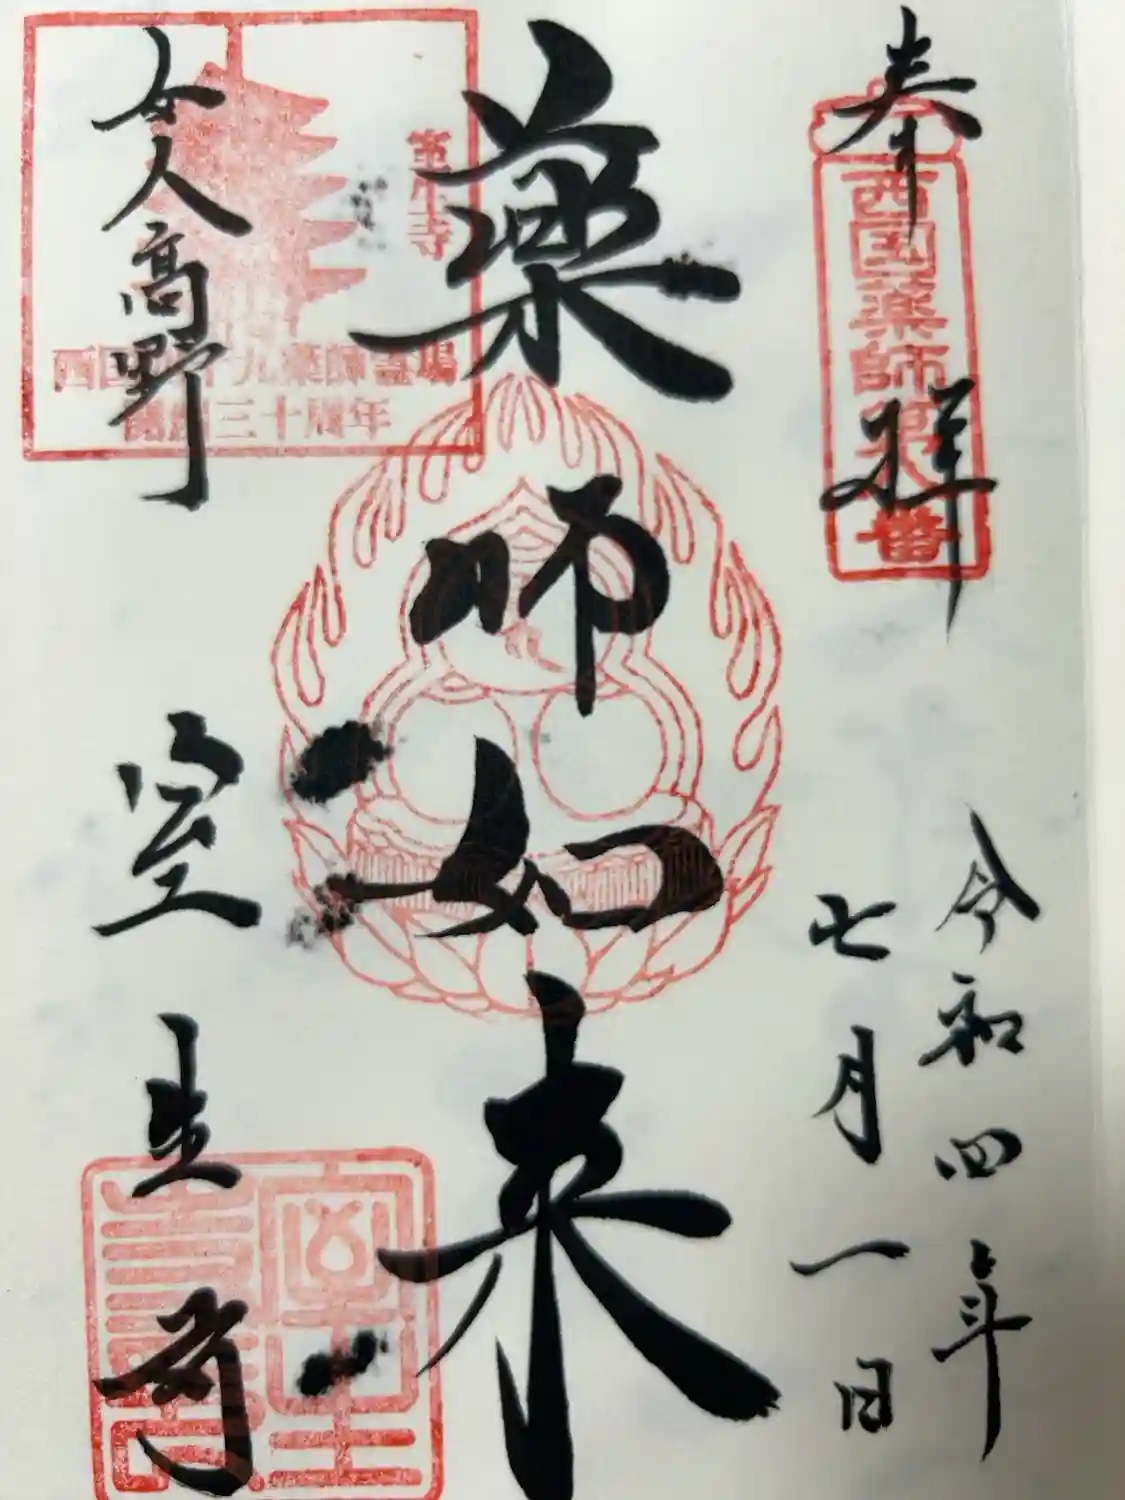 奉拝
西国薬師第八番
令和四年
七月一日
薬師如来
女人高野
室生寺
室生寺
西国四十九薬師霊場
開創三十周年
室生寺